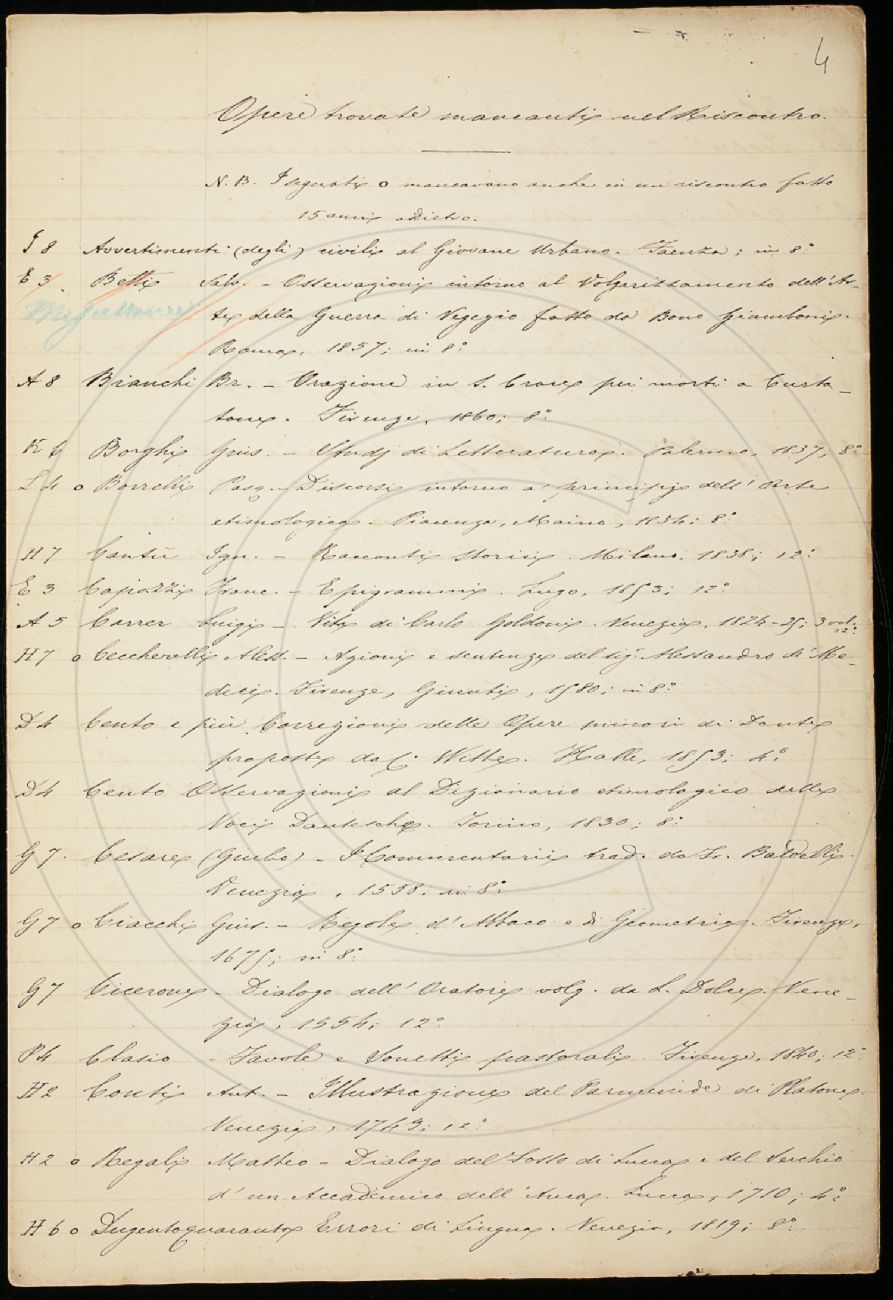 4
Opere trovate mancanti nel Riscontro.
N. B. I segnati o mancavano anche in un riscontro fatto
15 anni addietro.
I 8 Avvertimenti (degli) civili al Giovane Urbano. Faenza; in 8.°
E 3. Betti Salv. - Osservazioni intorno al Volgarizzamento dell'Ar-
te della Guerra di Vegezio fatto da Bono Giamboni.
Roma, 1857; in 8.°
A 8 Bianchi Br. - Orazione in S. Croce pei morti a Curta-
tone. Firenze, 1860; 8.°
K 6 Borghi Gius. - Studj di Letteratura. Palermo, 1837; 8.°
L 4 o Borrelli Pasq. - Discorsi intorno a' principj dell' Arte
etimologica. Piacenza, Maino, 1834; 8.°
H 7 Cantù Ign. - Racconti storici. Milano, 1838; 12.°
E 3 Capozzi Franc. - Epigrammi. Lugo, 1853; 12.°
A 5 Carrer Luigi - Vita di Carlo Goldoni. Venezia, 1824-25; 3 vol.
12.°
H 7 o Ceccherelli Aless. - Azioni e sentenze del sig.r Alessandro de' Me-
dici. Firenze, Giunti, 1580; in 8.°
D 4 Cento e più Correzioni delle Opere minori di Dante
proposte da C. Witte. Halle, 1853; 4.°
D 4 Cento Osservazioni al Dizionario etimologico delle
Voci Dantesche. Torino, 1830; 8.°
G 7. Cesare (Giulio) - I Commentarii trad. da Fr. Baldelli.
Venezia, 1558. in 8.°
G 7 o Ciacchi Gius. - Regole d' Abbaco e di Geometria. Firenze,
1675; in 8.°
G 7 Cicerone - Dialogo dell' Oratore volg. da L. Dolce. Vene-
zia, 1554; 12.°
P 4 Clasio - Favole e Sonetti pastorali. Firenze, 1840; 12.°
H 2 Conti Ant. - Illustrazione del Parmenide di Platone.
Venezia, 1743; 12.°
H 2 o Regali Matteo - Dialogo del Fosso di Lucca e del Serchio
d' un Accademico dell' Anca. Lucca, 1710; 4.°
H 6 o Dugentoquaranta Errori di Lingua. Venezia, 1819; 8.°